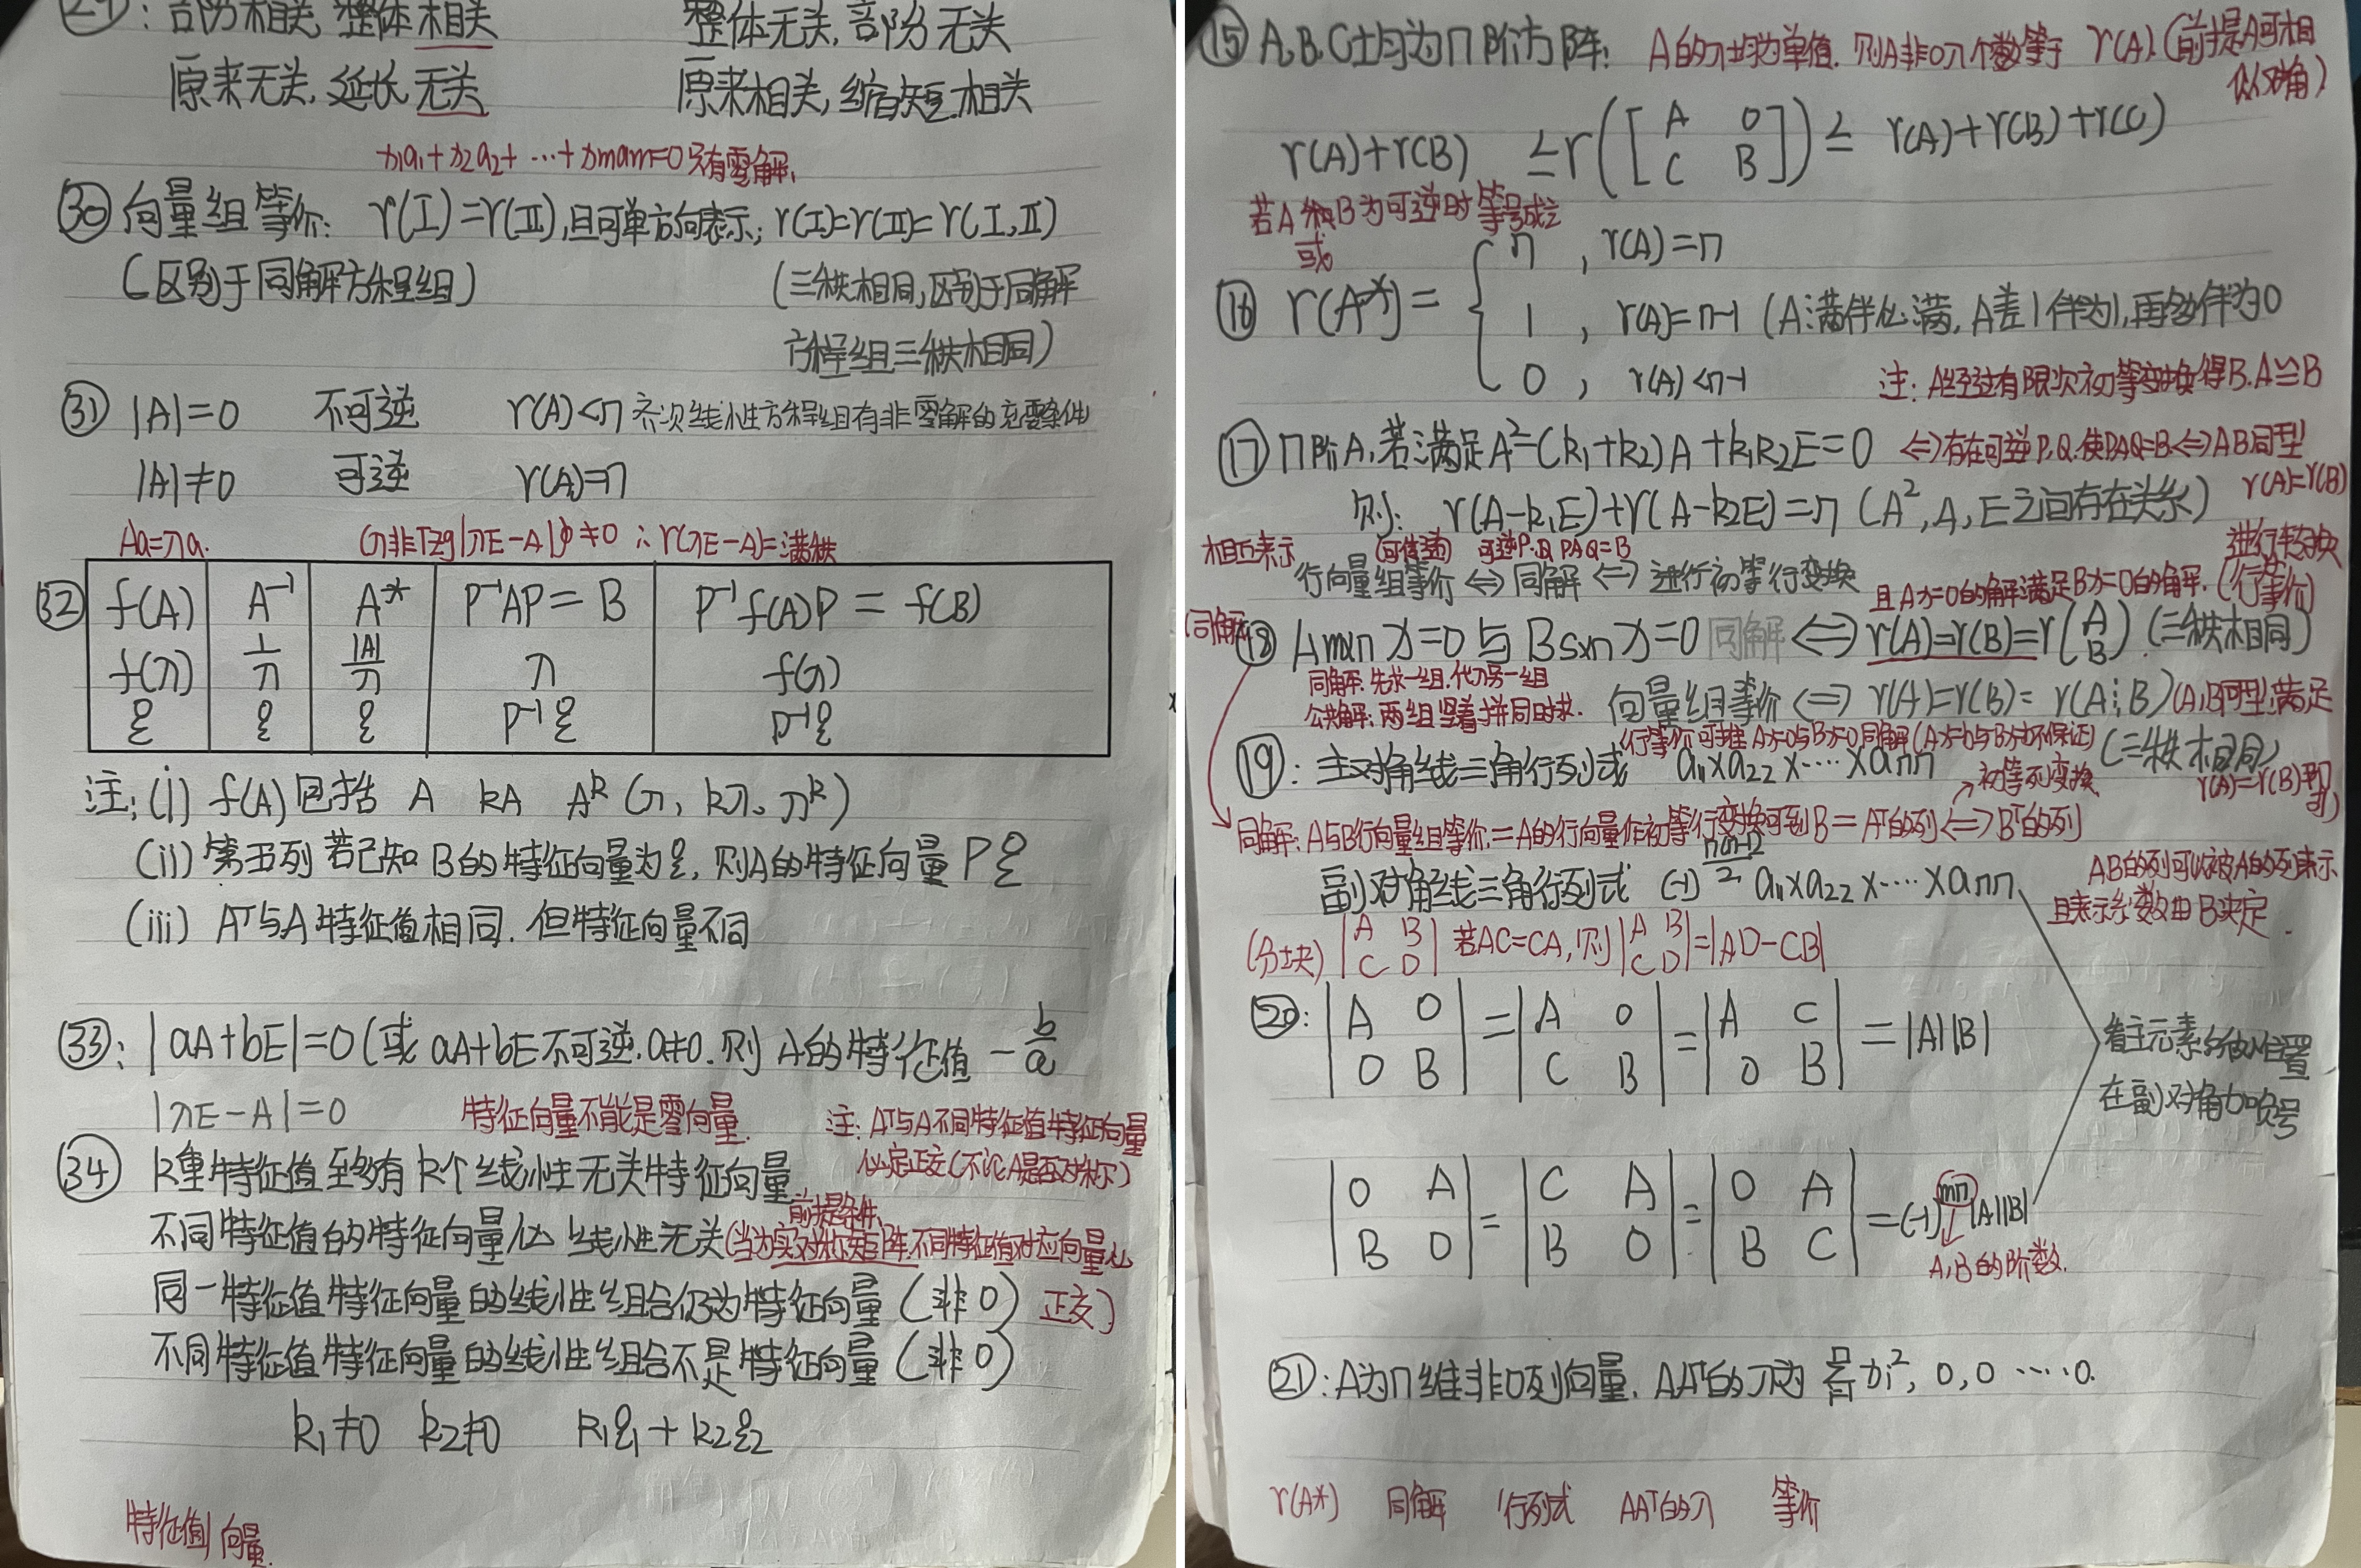 29：部分相关，整体相关 整体无关，部分无关
原来无关，延长无关 原来相关，缩短相关
x₁a₁+x₂a₂+…+xmam=0只有零解、
㉚ 向量组等价： r(Ⅰ)=r(Ⅱ)，且可单方向表示；r(Ⅰ)=r(Ⅱ)=r(Ⅰ,Ⅱ)
（区别于同解方程组） （三秩相同，区别于同解
方程组三秩相同）
㉛ |A|=0 不可逆 r(A)<n 齐次线性方程组有非零解的充要条件
|A|≠0 可逆 r(A)=n
Aa=λa.
∴r(λE-A)=满秩
㉜ f(A) A⁻¹ A* P⁻¹AP=B P⁻¹f(A)P=f(B)
f(λ) 1/λ |A|/λ λ f(λ)
ξ ξ ξ P⁻¹ξ P⁻¹ξ
注：(i) f(A)包括 A kA Aᵏ (λ, kλ, λᵏ)
(ii) 第五列 若已知B的特征向量为ξ，则A的特征向量Pξ
(iii) Aᵀ与A特征值相同，但特征向量不同
㉝：|aA+bE|=0(或aA+bE不可逆，a≠0，则A的特征值 -b/a
|λE-A|=0 特征向量不能是零向量.
注：Aᵀ与A不同特征值特征向量
必定正交(不论A是否对称)
㉞ k重特征值至多有k个线性无关特征向量
前提条件、
不同特征值的特征向量必线性无关(当为实对称矩阵，不同特征值对应向量必
正交)
同一特征值特征向量的线性组合仍为特征向量（非0）
不同特征值特征向量的线性组合不是特征向量（非0）
k₁≠0 k₂≠0 k₁ξ₁+k₂ξ₂
特征值向量
⑮ A、B、C均为n阶方阵： A的λ均为单值，则A非0λ个数等于 r(A).(前提A可相
似对角)
r(A)+r(B) ≤r([A 0 C B])≤ r(A)+r(B)+r(C)
若A和B为可逆时等号成立
或
⑯ r(A*)= { n ，r(A)=n
1 ，r(A)=n-1 (A满伴必满，A差1伴为1，再多伴为0
0 ，r(A)<n-1
注：A经过有限次初等变换得B.A≅B
⑰ n阶A，若满足A²-(k₁+k₂)A+k₁k₂E=0 ⇔存在可逆P、Q，使PAQ=B⇔AB同型
r(A)=r(B)
则：r(A-k₁E)+r(A-k₂E)=n (A²,A,E之间存在关系)
进行转换
相互表示
可逆P.Q PAQ=B
行向量组等价⇔同解⇔进行初等行变换
且Ax=0的解满足Bx=0的解.(行等价)
(同解
⑱ Am×n x=0与Bs×n x=0同解⇔r(A)=r(B)=r(A B).(三秩相同)
同解：先求一组，代入另一组
公共解：两组竖着拼同时求.
向量组等价⇔r(A)=r(B)=r(A⋮B)(A,B同型，满足
(行等价可推Ax=0与Bx=0同解(Ax=b与Bx=b不保证)
(三秩相同)
r(A)=r(B)即可)
⑲：主对角线三角行列式 a₁₁×a₂₂×····×ann
初等列变换
同解：A与B行向量组等价=A的行向量作初等行变换可到B=Aᵀ的列⇔Bᵀ的列
副对角线三角行列式 (-1)^(n(n-1)/2) a₁₁×a₂₂×····×ann
AB的列可以被A的列表示
且表示系数由B决定.
(分块) |A B C D| 若AC=CA，则|A B C D|=|AD-CB|
⑳：|A 0 0 B|=|A 0 C B|=|A C 0 B|=|A||B|
看主元素所处位置
在副对角加负号
|0 A B 0|=|C A B 0|=|0 A B C|=(-1)^mn|A||B|
A,B的阶数.
㉑：A为n维非0列向量，AAᵀ的λ为 Σxi², 0,0 ····0.
r(A*) 同解 行列式 AAᵀ的λ 等价